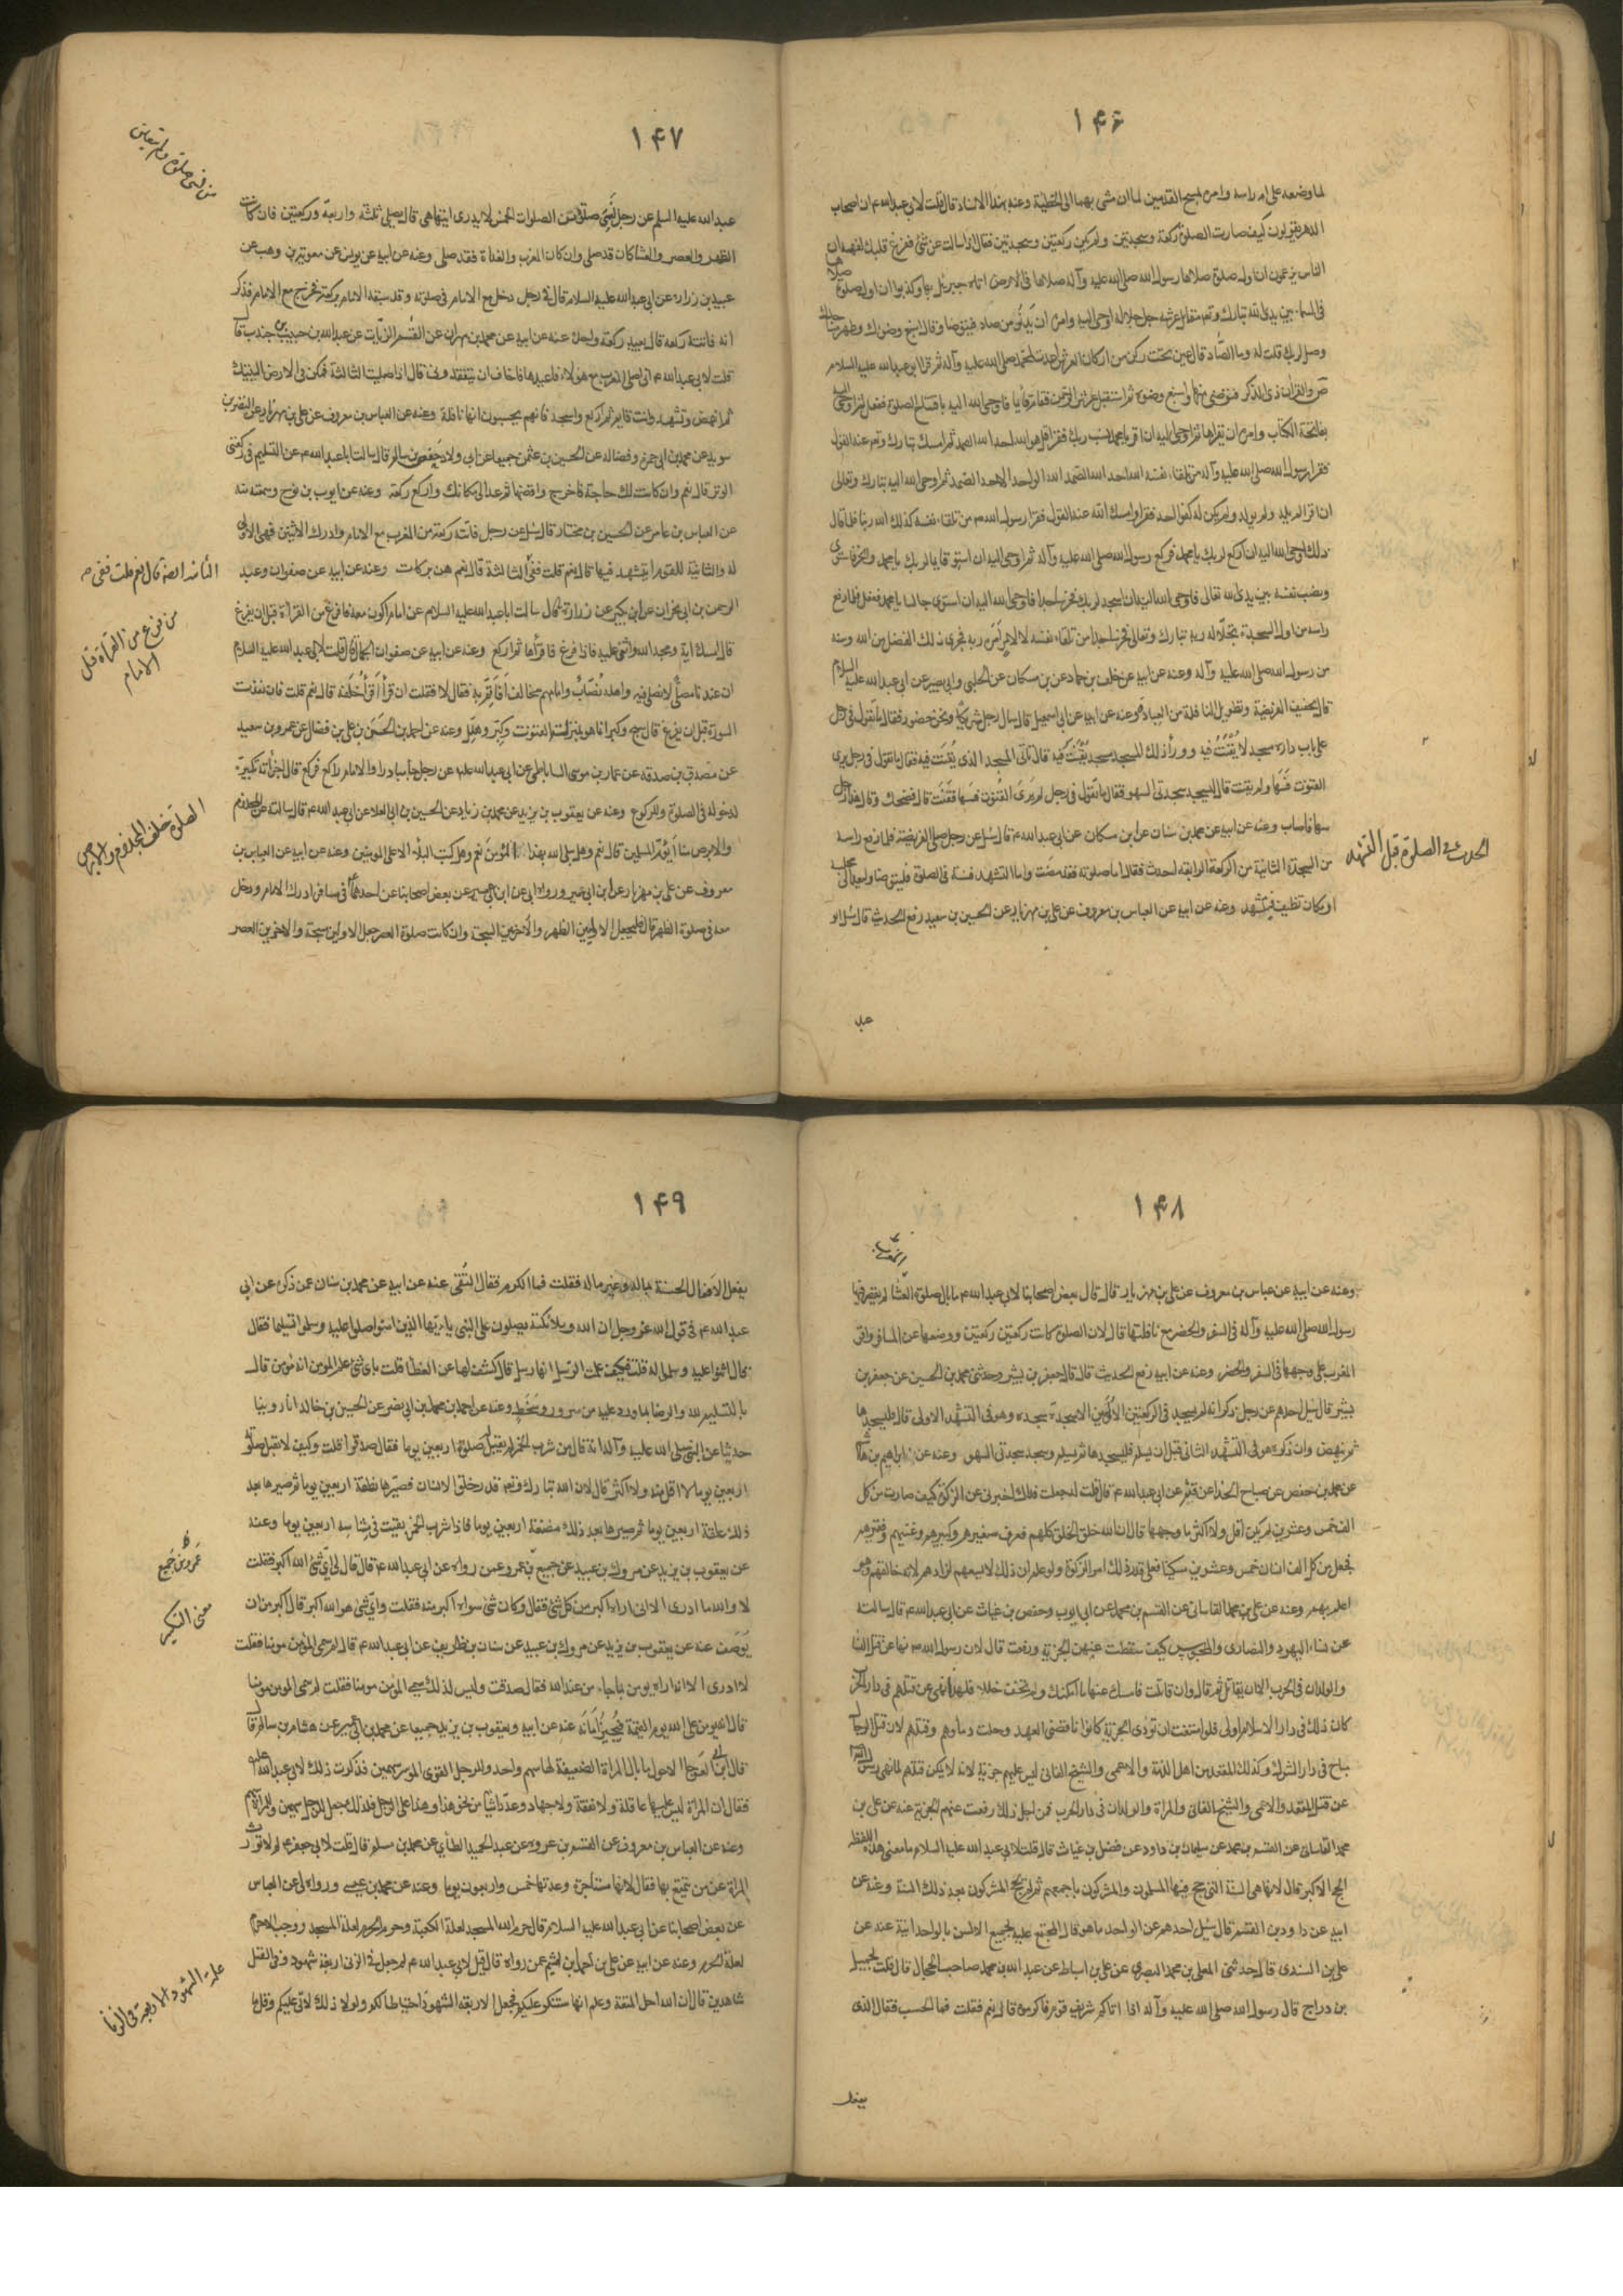 ۱۴۶
لما وضعه على ام راسه وامره بمسح القدمين لما ان مشى بهما الى الخطيئة وعنه بهذا الاسناد قال قلت لابي عبد الله ع ان اصحاب
الدهر يقولون كيف صارت الصلوة ركعة وسجدتين ولم يكن ركعتين وسجدتين فقال اذا سالت عن شئ ففرغ قلبك لتفهم ان
الناس يزعمون ان اول صلوة صلاها رسول الله صلى الله عليه وآله صلاها في الارض اتاه جبرئيل بها وكذبوا ان اول صلوة صلاها
في السماء بين يدي الله تبارك وتعالى مقابل عرشه جل جلاله اوحى اليه وامره ان يدنو من صاد فيتوضا وقال اسبغ وضوءك وطهر مساجدك
وصل لربك قلت له وما الصاد قال عين تحت ركن من اركان العرش اعدت لمحمد صلى الله عليه وآله ثم قرا ابو عبد الله عليه السلام
ص والقران ذي الذكر فتوضى منها واسبغ وضوءه ثم استقبل عرش الرحمن فقام قائما فاوحى الله اليه بافتتاح الصلوة ففعل ثم اوحى اليه
بفاتحة الكتاب وامره ان يقراها ثم اوحى اليه ان اقرا يا محمد نسب ربك فقرا قل هو الله احد الله الصمد ثم امسك تبارك وتعالى عنه القول
فقرا رسول الله صلى الله عليه وآله من تلقاء نفسه الله احد الله الصمد الله الواحد الاحد الصمد ثم اوحى الله اليه تبارك وتعالى
ان اقرا لم يلد ولم يولد ولم يكن له كفوا احد فقرا وامسك الله عنه القول فقرا رسول الله ص من تلقاء نفسه كذلك الله ربنا فلما قال
ذلك اوحى الله اليه ان اركع لربك يا محمد فركع رسول الله صلى الله عليه وآله ثم اوحى اليه ان استو قائما لربك يا محمد
ونصب نفسه بين يدي الله تعالى فاوحى الله اليه ان اسجد لربك فخر ساجدا فاوحى الله اليه ان استوى جالسا يا محمد ففعل فلما رفع
راسه من اول السجدة تجلا له ربه تبارك وتعالى فخر ساجدا من تلقاء نفسه لا لامر امره ربه فجرى ذلك الفضل من الله وسنة
من رسول الله صلى الله عليه وآله وعنه عن ابيه عن خلف بن حماد عن بن مسكان عن الحلبي وابي بصير عن ابي عبد الله عليه السلام
قال تخفيف الفريضة وتطويل النافلة من العبادة وعنه عن ابيه عن ابي اسمعيل قال سال رجل شريكا ونحن حضور فقال ما تقول في رجل
على باب داره مسجد لا يقنت فيه ووراء ذلك المسجد مسجد يقنت فيه قال ياتي المسجد الذي يقنت فيه فقال ما تقول في رجل يرى
القنوت فسها ولم يقنت قال يسجد سجدتي السهو فقال ما تقول في رجل لم يرى القنوت فسها فقنت قال فضحك وقال هذا رجل
سها فاصاب وعنه عن ابيه عن محمد بن سنان عن ابن مسكان عن ابي عبد الله ع قال سئل عن رجل صلى الفريضة فلما رفع راسه
من السجدة الثانية من الركعة الرابعة احدث فقال اما صلوته فقد مضت واما التشهد فسنة في الصلوة فليتوضا وليعد الى مجلسه
او مكان نظيف فيتشهد وعنه عن ابيه عن العباس بن معروف عن علي بن مهزيار عن الحسين بن سعيد رفع الحديث قال سئل ابو
الحدث في الصلوة قبل التشهد
عبد
۱۴۷
عبد الله عليه السلم عن رجل نسي صلوة من الصلوات الخمس لا يدرى ايتها هي قال يصلي ثلثة واربعة وركعتين فان كانت
الظهر والعصر والعشا كان قد صلى وان كان المغرب والغداة فقد صلى وعنه عن ابيه عن يونس عن معوية بن وهب عن
عبيد بن زرارة عن ابي عبد الله عليه السلام قال في رجل دخل مع الامام في صلوته وقد سبقه الامام بركعة فخرج مع الامام فذكر
انه فاتته ركعة قال يعيد ركعة واحدة عنه عن ابيه عن محمد بن مهران عن القسم الزيات عن عبد الله بن حبيب بن جندب قال
قلت لابي عبد الله ع اني اصلي المغرب مع هولاء فاعيدها فاخاف ان يتفقدوني قال اذا صليت الثالثة فمكن في الارض اليتيك
ثم انهض وتشهد وانت قايم ثم اركع واسجد فانهم يحسبون انها نافلة وعنه عن العباس بن معروف عن علي بن مهزيار عن النضر بن
سويد عن محمد بن ابي حمزة وفضالة عن الحسين بن عثمن جميعا عن ابي ولاد حفص بن سالم قال سالت ابا عبد الله ع عن التسليم في ركعتي
الوتر قال نعم وان كانت لك حاجة فاخرج واقضها ثم عد الى مكانك واركع ركعة وعنه عن ايوب بن نوح وسمعته منه
عن العباس بن عامر عن الحسين بن مختار قال سئل عن رجل فاتته ركعة من المغرب مع الامام وادرك الاثنتين فهي الاولى
له والثانية للقوم ايتشهد فيها قال نعم قلت ففي الثالثة قال نعم هن بركات وعنه عن ابيه عن صفوان وعبد
الرحمن بن ابي نجران عن ابن بكير عن زرارة قال سالت ابا عبد الله عليه السلام عن امام اكون معه فافرغ من القراءة قبل ان يفرغ
قال امسك اية ومجد الله واثن عليه فاذا فرغ فاقراها ثم اركع وعنه عن ابيه عن صفوان الجمال قال قلت لابي عبد الله عليه السلام
ان عندنا مصلى لا نصلي فيه واهله نصاب وامامهم مخالف افاتم به فقال لا فقلت ان قرا اقرا خلفه قال نعم قلت فان نفدت
السورة قبل ان يفرغ قال سبح وكبر انما هو بمنزلة القنوت وكبر وهلل وعنه عن احمد بن الحسن بن علي بن فضال عن عمرو بن سعيد
عن مصدق بن صدقة عن عمار بن موسى الساباطي عن ابي عبد الله عن رجل جا مبادرا والامام راكع فركع قال اجزأته تكبيرة
لدخوله في الصلوة وللركوع وعنه عن يعقوب بن يزيد عن محمد بن زياد عن الحسين بن ابي العلا عن ابي عبد الله ع قال سالته عن المجذوم
والابرص منا ايؤم المسلمين قال نعم وهل يبتلي الله بهذا الا المؤمن نعم وهل كتب البلاء الا على المومنين وعنه عن ابيه عن العباس بن
معروف عن علي بن مهزيار عن ابن ابي عمير ورواه ابي عن ابن ابي عمير عن بعض اصحابنا عن احدهما في مسافر ادرك الامام ودخل
معه في صلوة الظهر قال فليجعل الاوليين الظهر والاخرتين السبحة وان كانت صلوة العصر جعل الاولين سبحة والاخيرتين العصر
من نسى صلوة ولم يتعين
من فرغ من القراة قبل
الامام
الصلوة خلف المجذوم والابرص
۱۴۸
وعنه عن ابيه عن عباس بن معروف عن علي بن مهزيار قال قال بعض اصحابنا لابي عبد الله ع ما بال صلوة العشا لم يقصر فيها
رسول الله صلى الله عليه وآله في السفر والحضر مع نافلتها قال لان الصلوة كانت ركعتين ركعتين ووضعها عن المسافر واقر
المغرب على وجهها في السفر والحضر وعنه عن ابيه رفع الحديث قال قال جعفر بن بشير وحدثني محمد بن الحسين عن جعفر بن
بشير قال سئل احدهم عن رجل ذكر انه لم يسجد في الركعتين الاوليين الا سجدة وهو في التشهد الاولى قال فليسجدها
ثم ينهض وان ذكره وهو في التشهد الثاني قبل ان يسلم فليسجدها ثم يسلم ويسجد سجدتي السهو وعنه عن ابراهيم بن هاشم
عن محمد بن حفص عن صباح الحذا عن قثم عن ابي عبد الله ع قال قلت له جعلت فداك اخبرني عن الزكوة كيف صارت من كل
الف خمس وعشرين لم يكن اقل ولا اكثر ما وجهها قال ان الله خلق الخلق كلهم فعرف صغيرهم وكبيرهم وغنيهم وفقيرهم
فجعل من كل الف انسان خمس وعشرين مسكينا فعلى قدر ذلك امر الزكوة ولو علم ان ذلك لا يسعهم لزادهم لانه خالقهم وهو
اعلم بهم وعنه عن علي بن محمد القاساني عن القسم بن محمد عن ابي ايوب وحفص بن غياث عن ابي عبد الله ع قال سالته
عن نساء اليهود والنصارى والمجوس كيف سقطت عنهن الجزية ورفعت قال لان رسول الله ص نها عن قتل النسا
والولدان في الحرب الا ان يقاتلن ثم قال وان قاتلت فامسك عنها ما امكنك ولم تخف خللا فلما نهى عن قتلهم في دار الحرب
كان ذلك في دار الاسلام اولى فلو امتنعت ان تؤدى الجزية كانوا ناقضي العهد وحلت دماوهم وقتلهم لان قتل الرجال
مباح في دار الشرك وكذلك المقعد من اهل الذمة والاعمى والشيخ الفاني ليس عليهم جزية لانه لا يمكن قتلهم لما نهى رسول الله
عن قتل المقعد والاعمى والشيخ الفاني والمراة والولدان في دار الحرب فمن اجل ذلك رفعت عنهم الجزية عنه عن علي بن
محمد القاساني عن القسم بن محمد عن سليمان بن داود عن فضيل بن غياث قال قلت لابي عبد الله عليه السلام ما معنى هذه اللفظة
الحج الاكبر قال لانها هي السنة التي حج فيها المسلمون والمشركون باجمعهم ثم لم يحج المشركون بعد ذلك السنة وعنه عن
ابيه عن داود بن القسم قال سئل احدهم عن الواحد ما هو قال المجتمع عليه بجميع الالسن بالواحدانية عنه عن
علي بن السندي قال حدثني المعلى بن محمد البصري عن علي بن اسباط عن عبد الله بن محمد صاحب الحجال قال قلت لجميل
بن دراج قال رسول الله صلى الله عليه وآله اذا اتاكم شريف قوم فاكرموه قال نعم فقلت فما الحسب فقال الذي
يفعل
۱۴۹
يفعل الافعال الحسنة بماله وغير ماله فقلت فما الكرم فقال التقى عنه عن ابيه عن محمد بن سنان عمن ذكره عن ابي
عبد الله ع في قول الله عز وجل ان الله وملائكته يصلون على النبي يا ايها الذين امنوا صلوا عليه وسلموا تسليما فقال
قال اثنوا عليه وسلموا له قلت فكيف علمت الرسل انها رسل قال كشف لها عن الغطا قلت باى شئ علم المومن انه مومن قال
بالتسليم لله والرضا بما ورد عليه من سرور وسخط وعنه عن احمد بن محمد بن ابي نصر عن الحسين بن خالد انا روينا
حديثا عن النبي صلى الله عليه وآله انه قال من شرب الخمر لم يقبل صلوة اربعين يوما فقال صدقوا قلت وكيف لا تقبل صلوته
اربعين يوما لا اقل منه ولا اكثر قال لان الله تبارك وتعالى قدر خلق الانسان فصيرها نطفة اربعين يوما ثم صيرها بعد
ذلك علقة اربعين يوما ثم صيرها بعد ذلك مضغة اربعين يوما فاذا شرب الخمر بقيت في مشاشه اربعين يوما وعنه
عن يعقوب بن يزيد عن مروك بن عبيد عن جميع بن عمرو عمن رواه عن ابي عبد الله ع قال قال لي اي شئ الله اكبر فقلت
لا والله ما ادرى الا اني اراه اكبر من كل شئ فقال وكان شئ سواه اكبر منه فقلت واي شئ هو الله اكبر قال اكبر من ان
يوصف عنه عن يعقوب بن يزيد عن مروك بن عبيد عن سنان بن طريف عن ابي عبد الله ع قال لم سمى المؤمن مومنا فقلت
لا ادرى الا انه اراه يومن بما جاء من عند الله فقال صدقت وليس لذلك سمى المؤمن مومنا فقلت لم سمى المومن مومنا
قال انه يومن على الله يوم القيمة فيجيز امانه عنه عن ابيه ويعقوب بن يزيد جميعا عن محمد بن ابي عمير عن هشام بن سالم قال
قال ابن ابي العوجا للاحول ما بال المراة الضعيفة لها سهم واحد وللرجل القوى الموسر سهمين فذكرت ذلك لابي عبد الله ع
فقال ان المراة ليس عليها عاقلة ولا نفقة ولا جهاد وعد اشيا من نحو هذا وهذا على الرجل فلذلك جعل للرجل سهمين وللمراة سهم
وعنه عن العباس بن معروف عن القسم بن عروة عن عبد الحميد الطأي عن محمد بن مسلم قال قلت لابي جعفر ع لم لا تورث
المراة عمن يتمتع بها فقال لانها مستاجرة وعدتها خمس واربعون يوما وعنه عن محمد بن عيسى ورواه لي عن العباس
عن بعض اصحابنا عن ابي عبد الله عليه السلام قال حرم الله المسجد لعلة الكعبة وحرم الحرم لعلة المسجد ووجب الاحرام
لعلة الحرم وعنه عن ابيه عن علي بن احمد بن اشيم عمن رواه قال قيل لابي عبد الله ع لم جعل في الزنى اربعة شهود وفي القتل
شاهدين قال ان الله احل المتعة وعلم انها ستنكر عليكم فجعل الاربعة الشهود احتياطا لكم ولولا ذلك لاتى عليكم وقل ما
عمرو بن جميع
معنى التكبير
علة الشهود الاربعة في الزنا